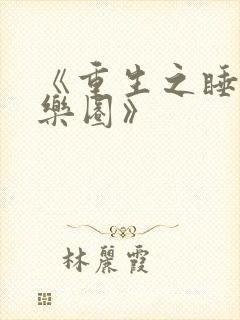 《重生之睡
樂園》
林麗霞